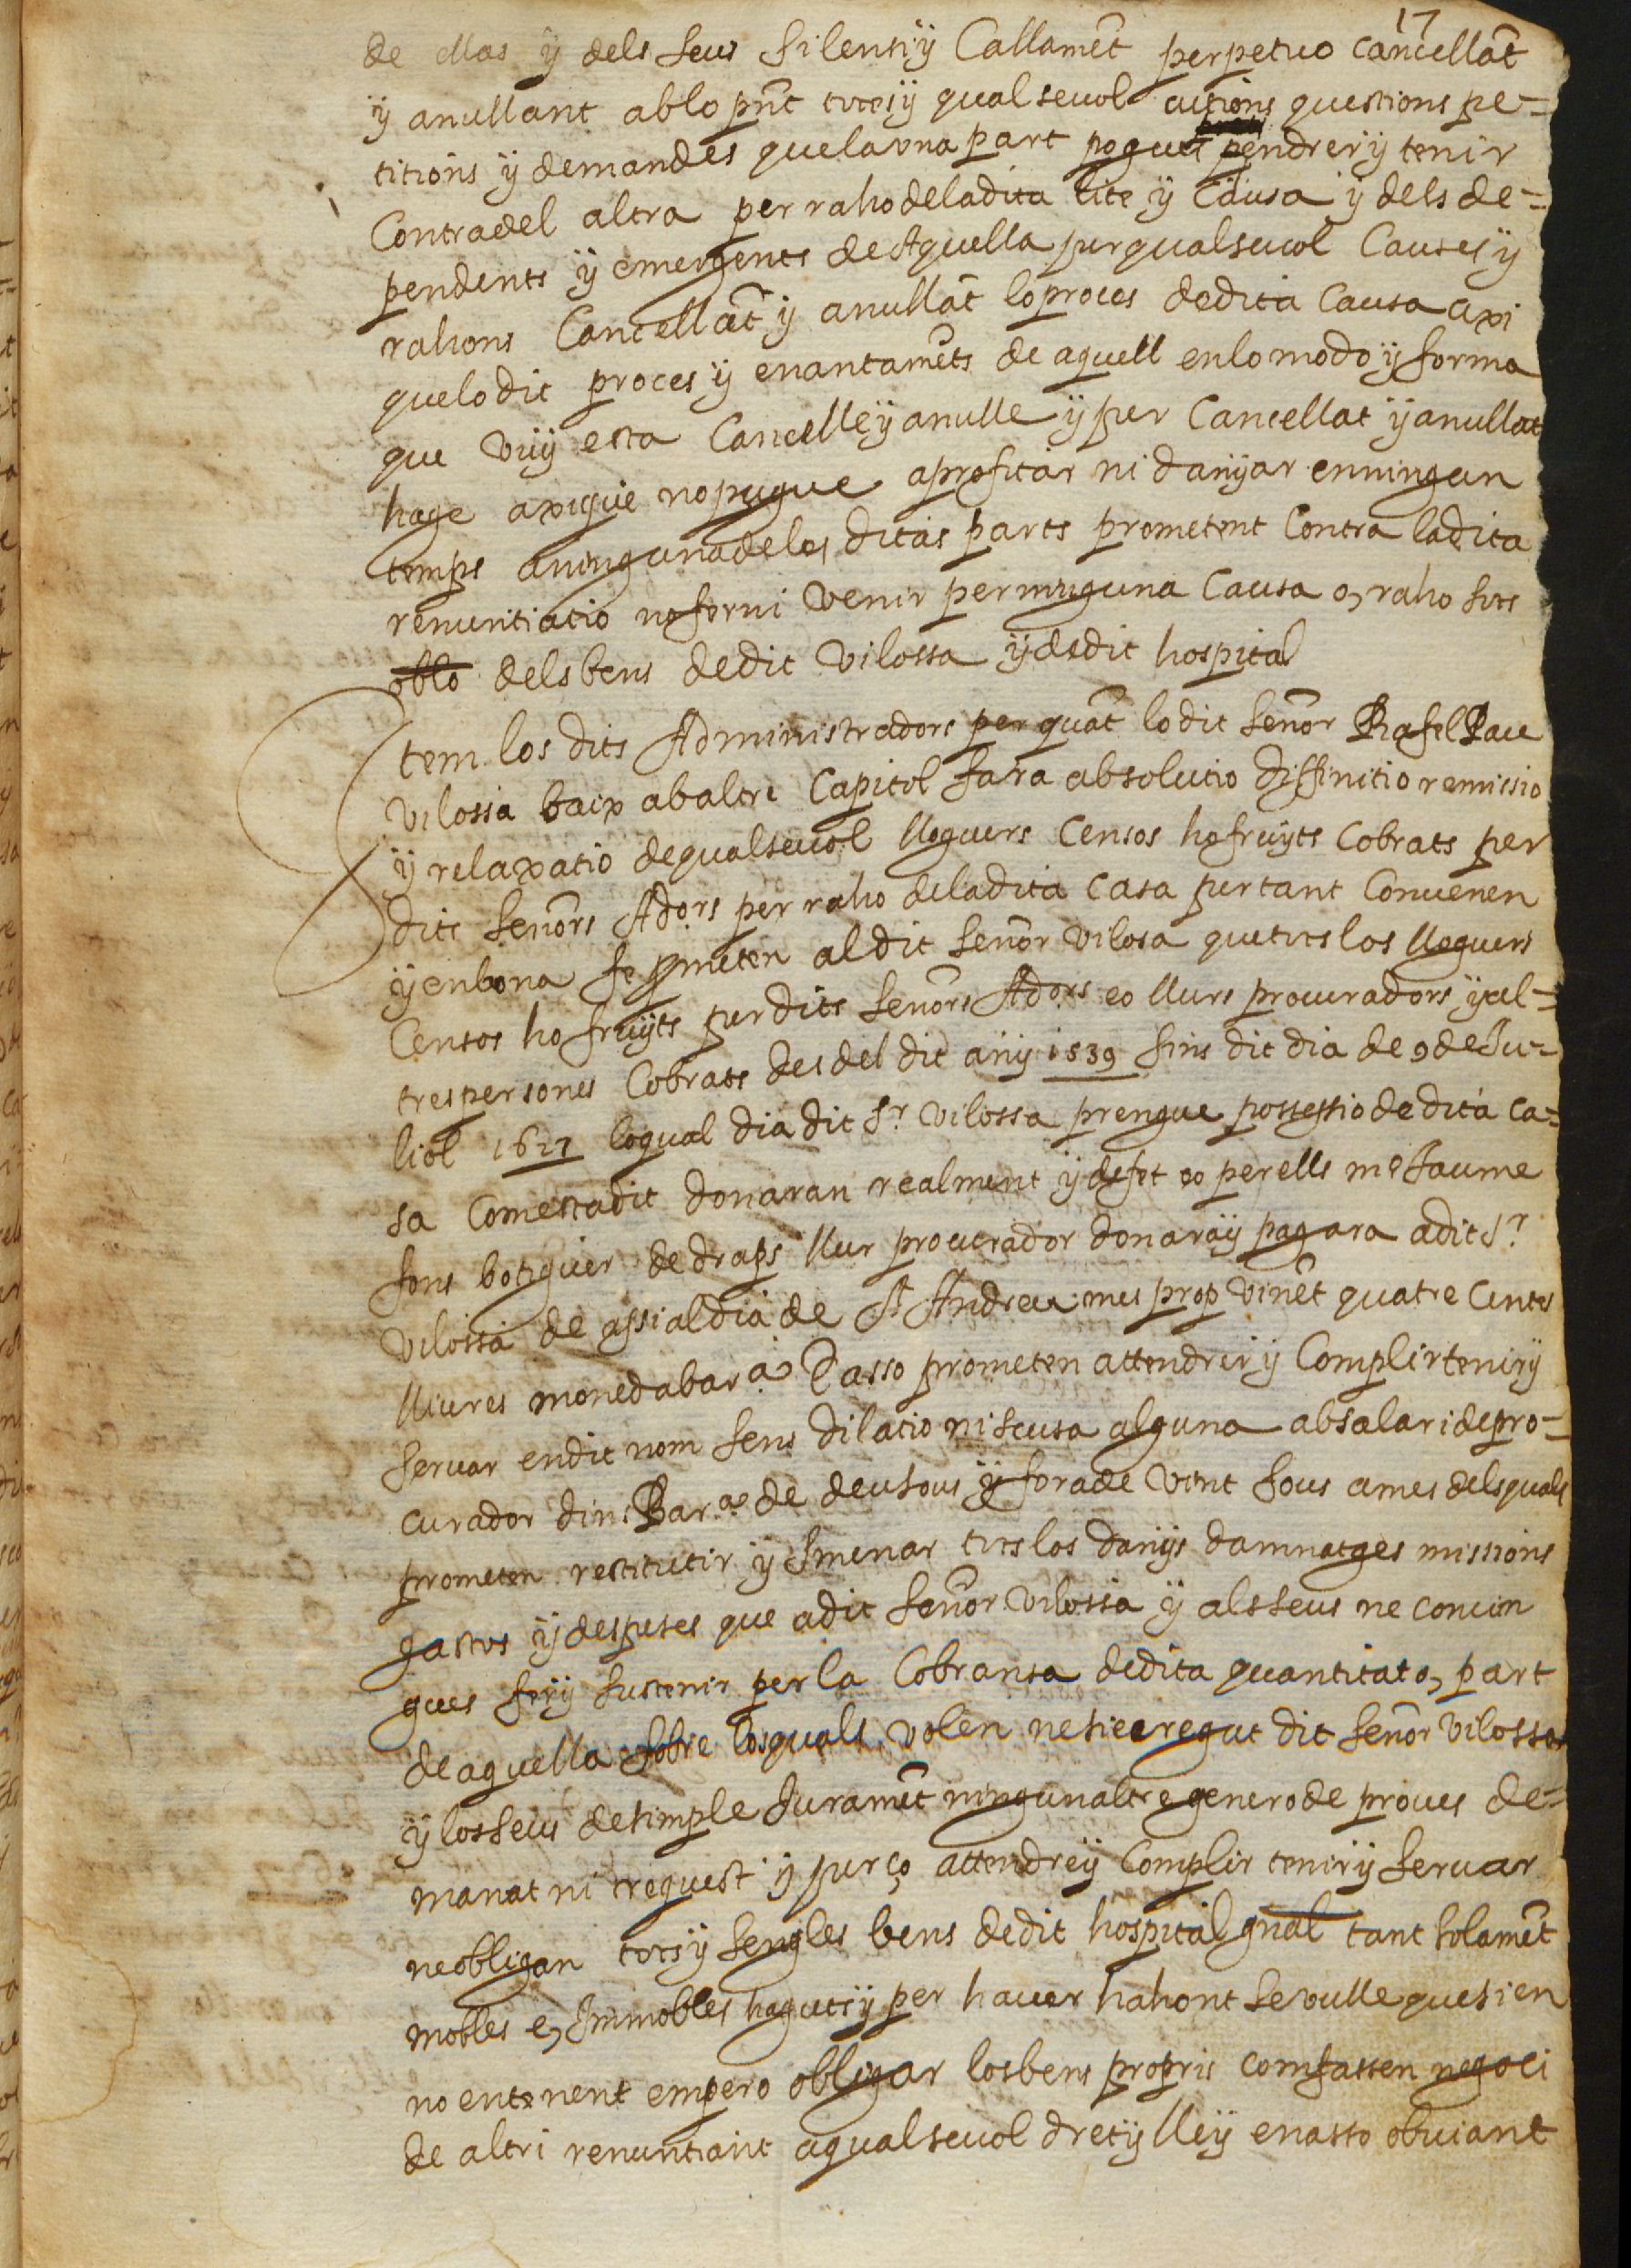 17
de ellas ÿ dels seus silensiÿ Callamēt perpetuo cancellāt
ÿ anullant ablo pnt totsÿ qualseuol actions questions pe-
titions ÿ demandes quelauna part pogues pendrerÿ tenir
Contradel altra per raho deladita lite ÿ Causa ÿ dels de-
pendents ÿ emergents deAquella perqualseuol Causesÿ
rahons Cancellāt ÿ anullāt loproces dedita Causa axi
quelodit proces ÿ enantamēts de aquell enlo modo ÿ forma
que vuÿ esta Cancelleÿ anulle ÿ per Cancellat ÿ anullat
hage axique nopugue aprofitar ni danÿar enningun
temps aningunadelas ditas parts prometent Contra ladita
renuntiatio noferni venir perninguna Causa o, raho sots
oblo delsbens dedit Vilossa ÿ dedit hospital
Item los dits Administradors per quāt lodit señor Rafel Pau
Vilossa baix abaltre Capitol fara absolutio diffinitio remissio
ÿ relaxatio dequalseuol lloguers Censos hofruÿts Cobrats per
dits señors Adors per raho deladita casa pertant Conuenen
ÿ enbona fe pmeten aldit señor Vilosa quetots los lloguers
Censos ho fruÿts per dits señors Adors eo llurs procuradors ÿ al-
trespersones Cobrats desdel dit anÿ 1539 fins dit dia de 9 deJu-
liol 1627 loqual dia dit Sr. Vilossa prengue possessio de dita ca-
sa Comestadit donaran realment ÿ defet eo perells me Jaume
fons botiguer de draps llur procurador donaraÿ pagara adit Sr.
Vilossa de assi aldia de St Andreu mes prop vinēt quatre Cents
lliures monedabara. E asso prometen attendrerÿ Complirtenirÿ
seruar endit nom sens dilatio niscusa alguna absalaridepro-
curador dins Bar.a de deusous ÿ forade vint sous ames delsquals
prometen restituir ÿ smenar tots los danÿs damnatges missions
gastos ÿ despeses que adit señor Vilossa ÿ alsseus ne conuin
gues ferÿ sustenir perla Cobransa dedita quantitat o, part
de aquella sobre losquals volen nesiecregut dit señor Vilossa
ÿ losseus desimple Juramēt ningunaltre genero de proues de-
manat ni request ÿ perço attendreÿ Complir tenirÿ seruar
neobligan totsÿ sengles bens dedit hospital gnal tant solamēt
mobles e, Immobles hagutsÿ per hauer hahont sevulle quesien
no entenent empero obligar losbens propris comfassen negoci
de altri renuntiant aqualseuol dretÿ lleÿ enasso obuiant